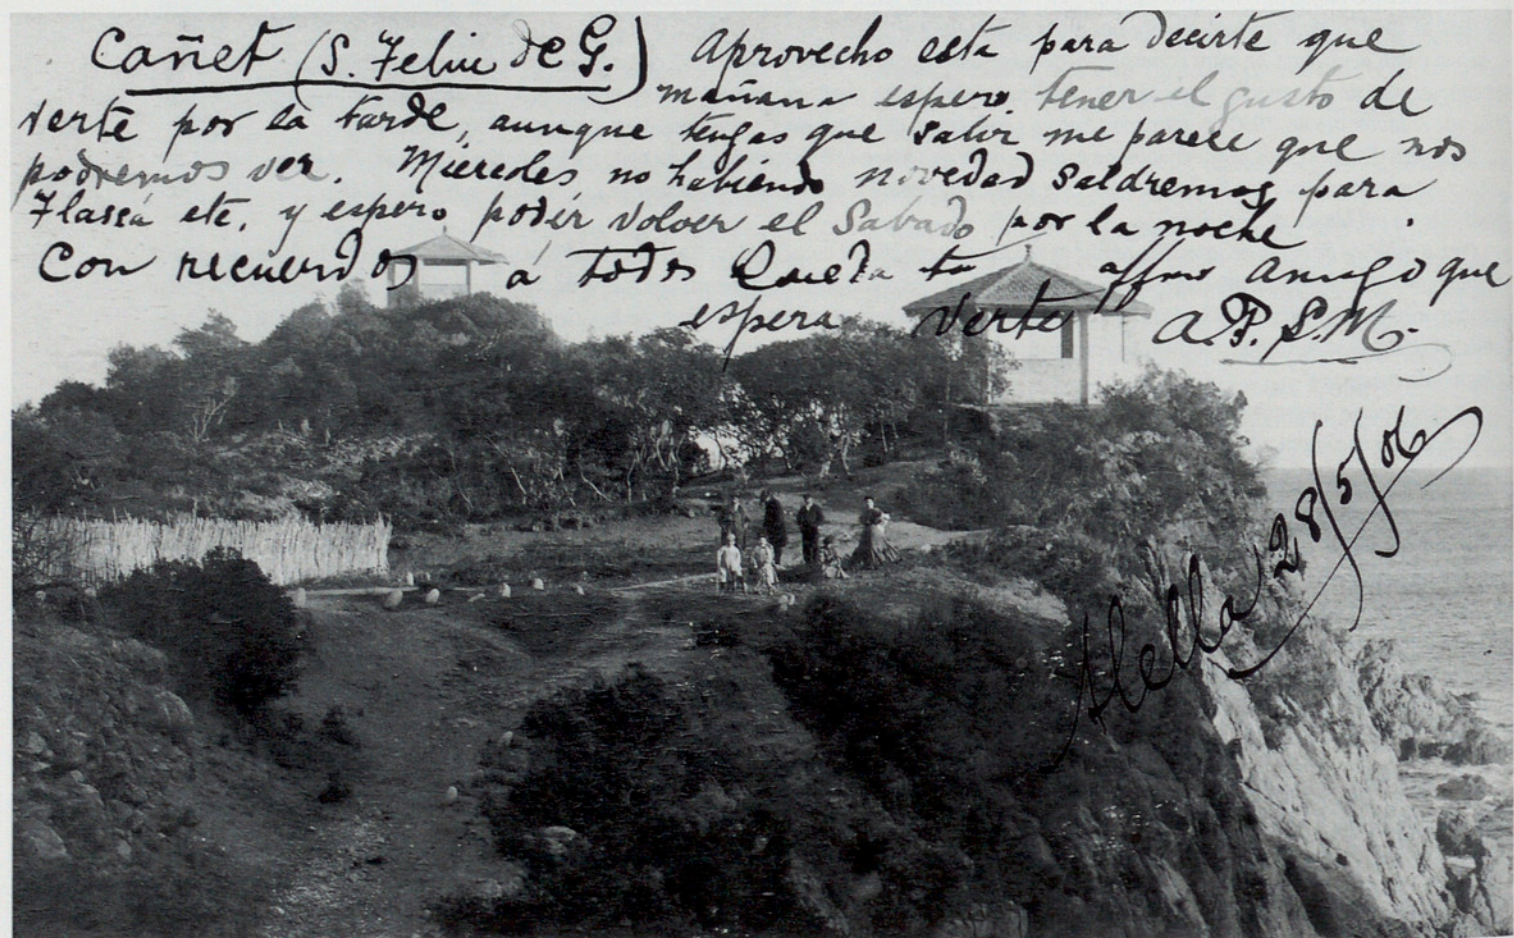 Cañet (S. Feliu de G.) Aprovecho esta para decirte que
mañana espero tener el gusto de
verte por la tarde, aunque tengas que salir me parece que nos
podremos ver. Miercoles, no habiendo novedad saldremos para
Flassá etc. y espero poder volver el Sabado por la noche.
Con recuerdos á todos queda tu affmo amigo que
espera verte A.P.S.M.
Alella 28/5/06